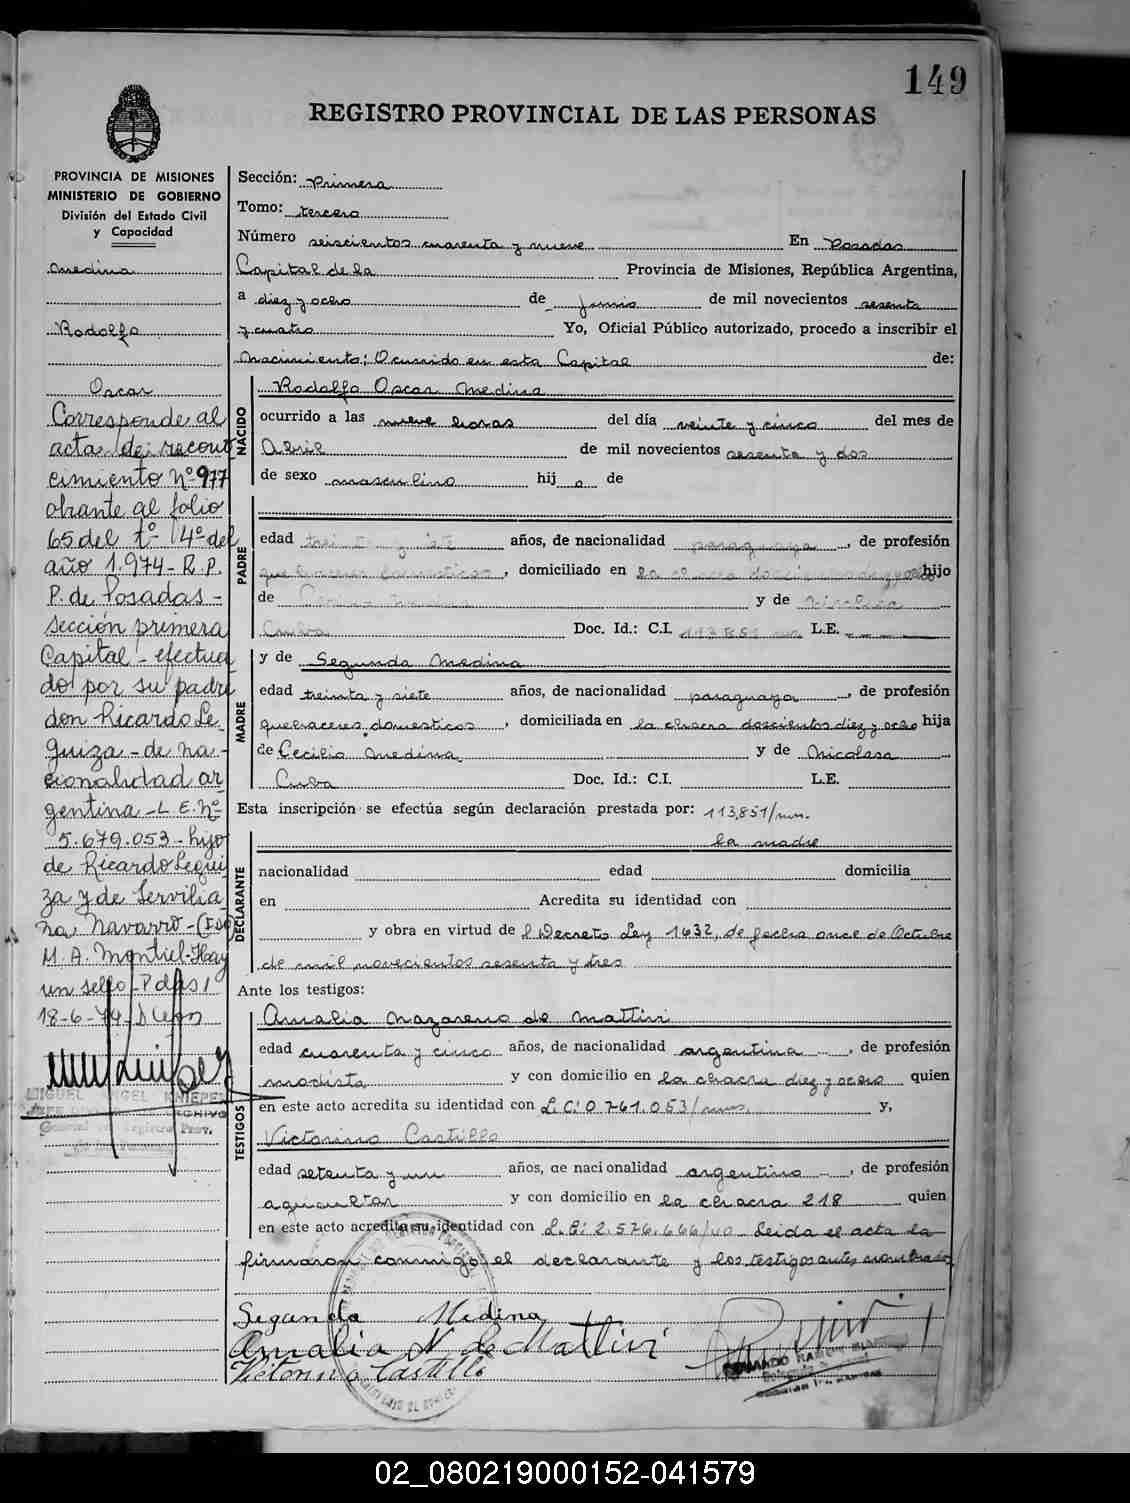 149
REGISTRO PROVINCIAL DE LAS PERSONAS
PROVINCIA DE MISIONES
MINISTERIO DE GOBIERNO
División del Estado Civil
y Capacidad
Medina
Rodolfo
Oscar
Corresponde al
acta de recono
cimiento Nº 977
obrante al folio
65 del tº 4º del
año 1.974 - R.P.
P. de Posadas -
sección primera
Capital - efectua
do por su padre
don Ricardo Le-
guiza - de na-
cionalidad ar
gentina - L.E. Nº
5.679.053 - hijo
de Ricardo Legui
za y de Servilia
na Navarro -
M. A. Montiel - Hay
un sello - Pdas/
18-6-74
MIGUEL ANGEL
Sección: Primera
Tomo: tercero
Número seiscientos cuarenta y nueve En Posadas
Capital de la Provincia de Misiones, República Argentina,
a diez y ocho de Junio de mil novecientos sesenta
y cuatro Yo, Oficial Público autorizado, procedo a inscribir el
Nacimiento; Ocurrido en esta Capital de:
NACIDO
Rodolfo Oscar Medina
ocurrido a las nueve horas del día veinte y cinco del mes de
Abril de mil novecientos sesenta y dos
de sexo masculino hij o de
PADRE
edad treinta y siete años, de nacionalidad paraguaya, de profesión
quehaceres domesticos, domiciliado en la chacra doscientos diez y ocho hijo
de Cecilio Medina y de Nicolasa
Cuba Doc. Id.: C.I. 113.851 L.E.
MADRE
y de Segunda Medina
edad treinta y siete años, de nacionalidad paraguaya, de profesión
quehaceres domesticos, domiciliada en la chacra doscientos diez y ocho hija
de Cecilio Medina y de Nicolasa
Cuba Doc. Id.: C.I. L.E.
Esta inscripción se efectúa según declaración prestada por: 113,851/mns.
DECLARANTE
la madre
nacionalidad edad domicilia
en Acredita su identidad con
y obra en virtud del Decreto Ley 1632, de fecha once de Octubre
de mil novecientos sesenta y tres
Ante los testigos:
TESTIGOS
Amalia Nazareno de Mattivi
edad cuarenta y cinco años, de nacionalidad argentina, de profesión
modista y con domicilio en la chacra diez y ocho quien
en este acto acredita su identidad con L.C: 0.761.053/mns. y,
Victorino Castillo
edad setenta y un años, de nacionalidad argentino, de profesión
agricultor y con domicilio en la chacra 218 quien
en este acto acredita su identidad con L.E: 2.576.666/ Leida el acta la
firmaron conmigo el declarante y los testigos antes nombrado
Segunda Medina
Amalia N. de Mattivi
Victorino Castillo
02_080219000152-041579